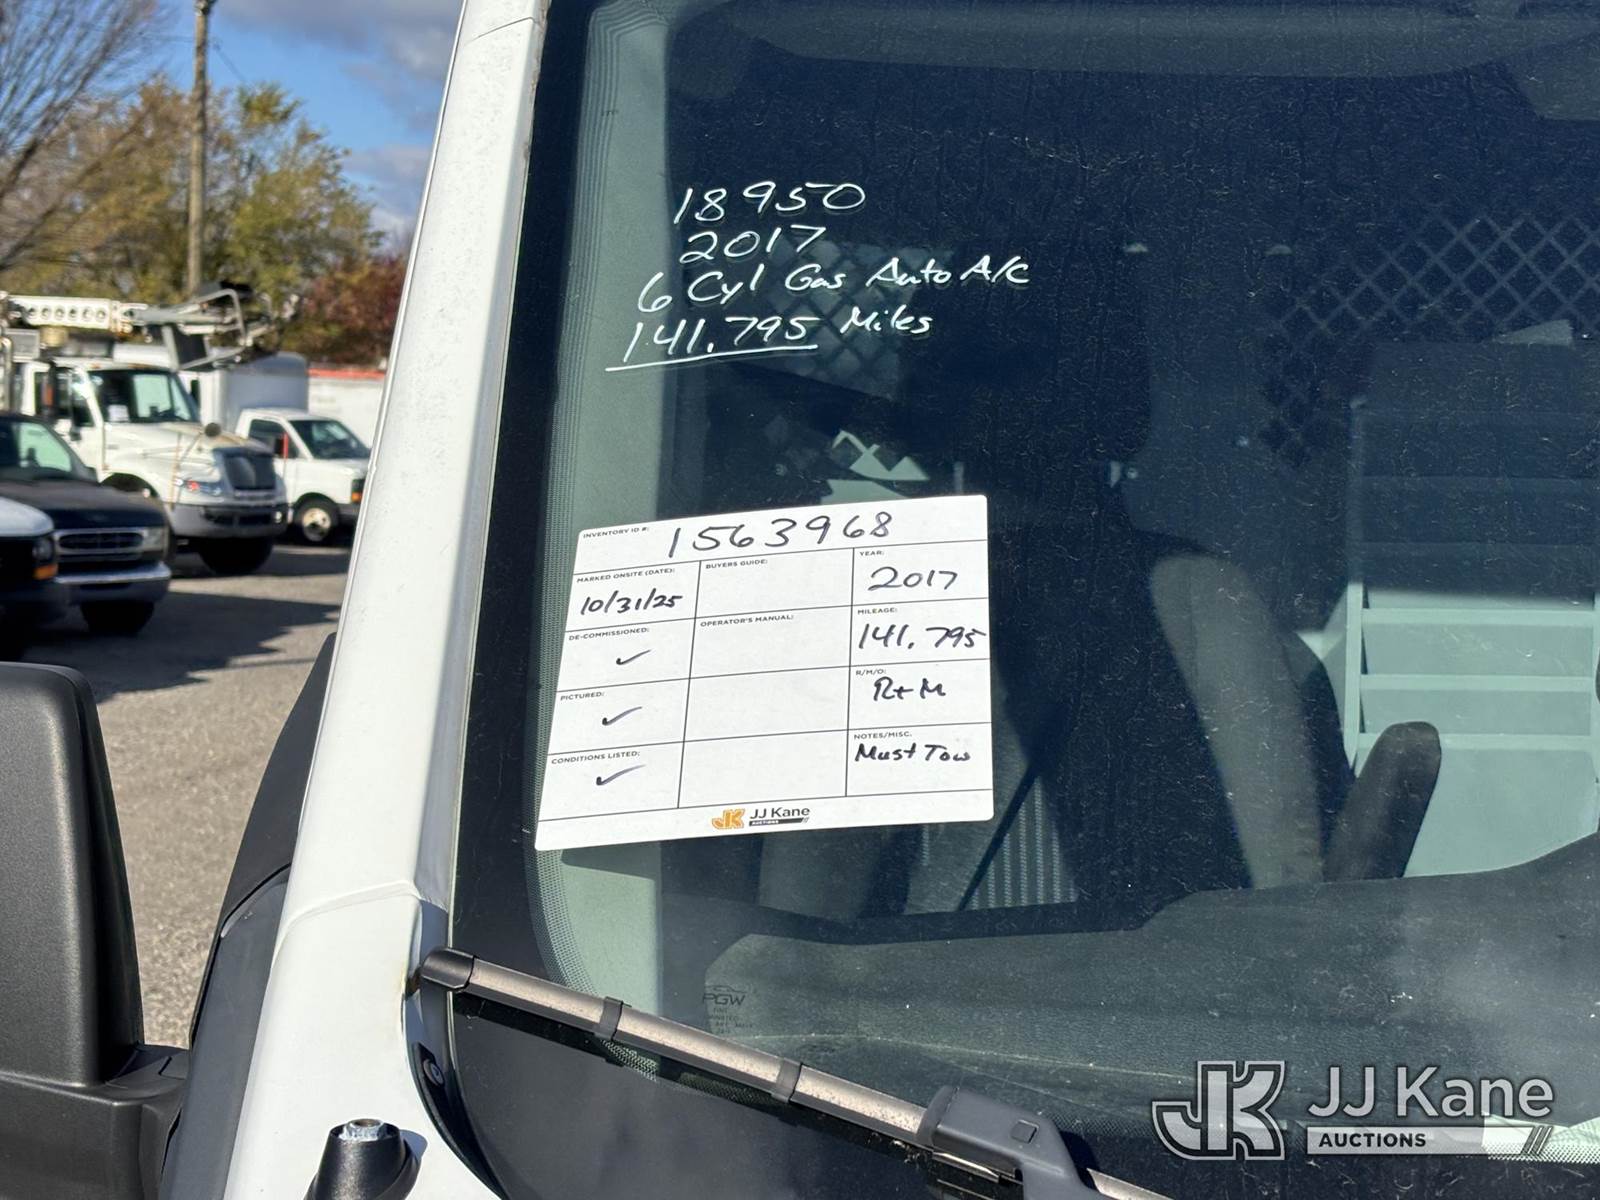 18950
2017
6 Cyl Gas Auto A/C
141.795 Miles
INVENTORY ID #: 1563968
MARKED ONSITE (DATE): 10/31/25
BUYERS GUIDE:
YEAR: 2017
DE-COMMISSIONED: ✓
OPERATOR'S MANUAL:
MILEAGE: 141.795
PICTURED: ✓
R/M/O: R+M
CONDITIONS LISTED: ✓
NOTES/MISC. Must Tow
JK JJ Kane
AUCTIONS
PGW
JK JJ Kane
AUCTIONS